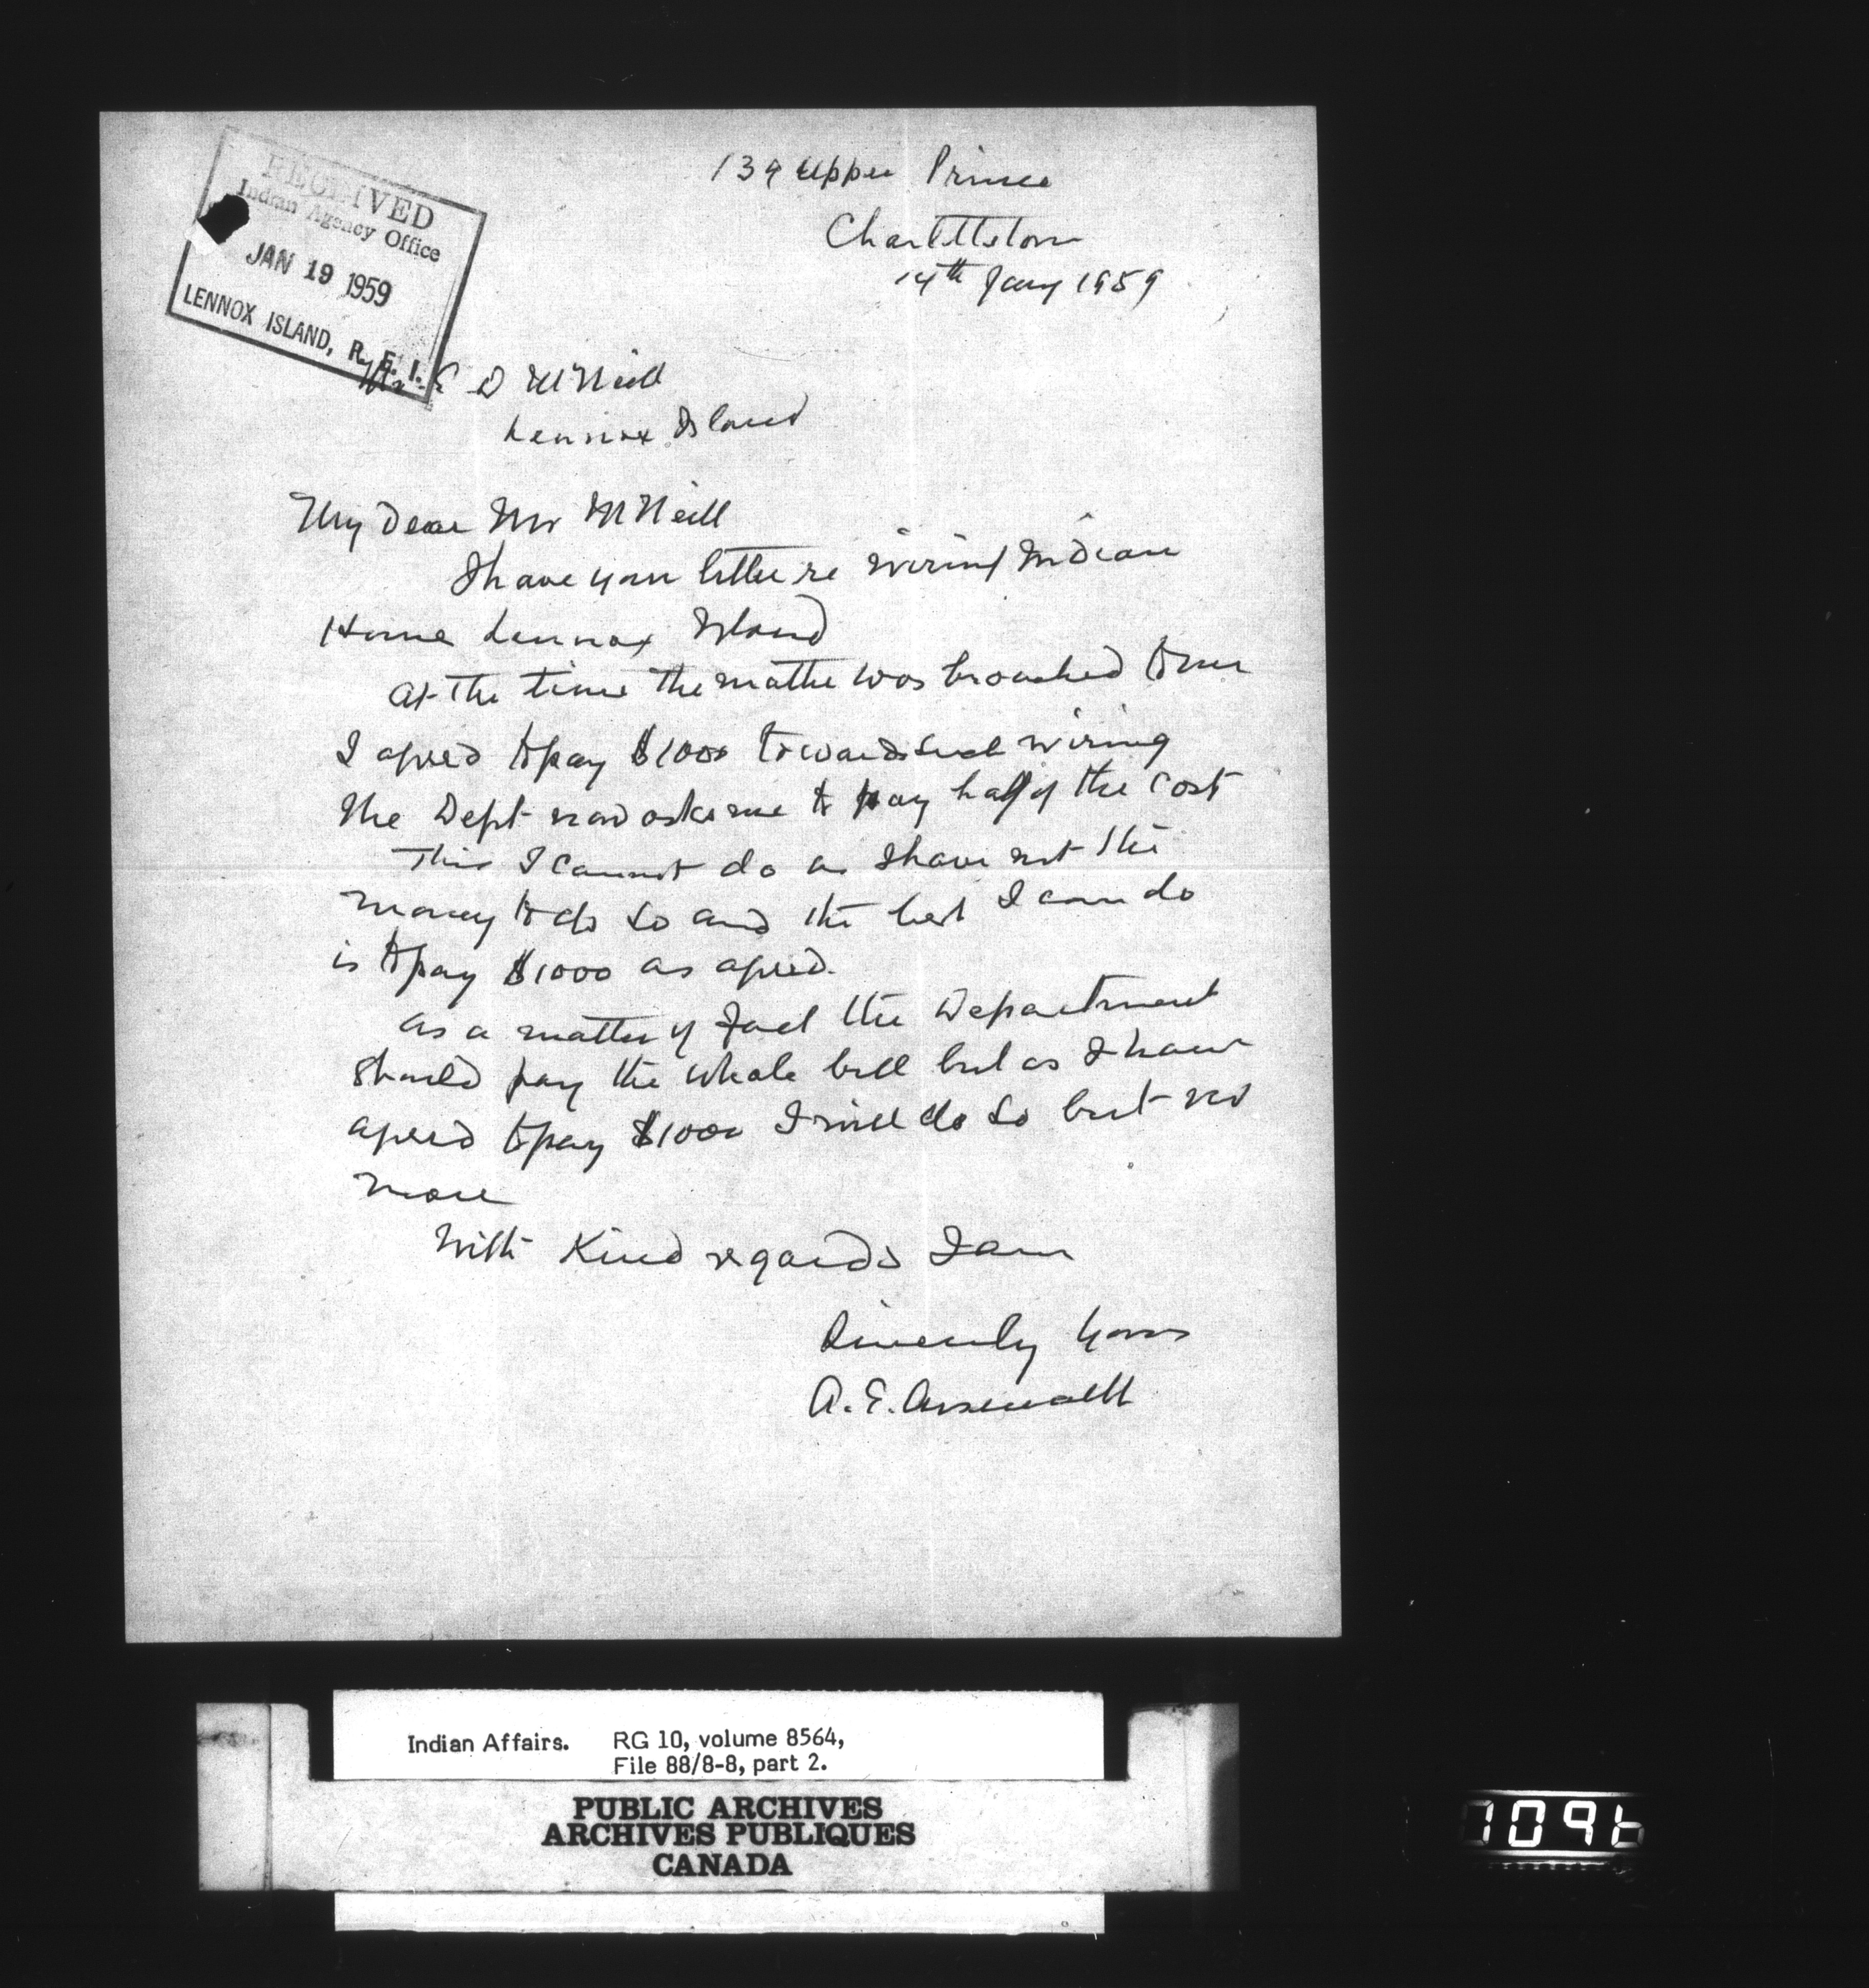 RECEIVED
Indian Agency Office
JAN 19 1959
LENNOX ISLAND, P. E. I.
139 Upper Prince
Charlottetown
14th Jany 1959
Mr E D McNeill
Lennox Island
My Dear Mr McNeill
I have your letter re wiring Indian
Home Lennox Island
At the time the matter was broached to me
I agreed to pay $1000 towards such wiring
The Dept now asks me to pay half of the cost
This I cannot do as I have not the
money to do so and the best I can do
is to pay $1000 as agreed.
As a matter of fact the Department
should pay the whole bill but as I have
agreed to pay $1000 I will do so but no
more
With Kind regards I am
Sincerely Yours
A. E. Arsenault
Indian Affairs. RG 10, volume 8564,
File 88/8-8, part 2.
PUBLIC ARCHIVES
ARCHIVES PUBLIQUES
CANADA